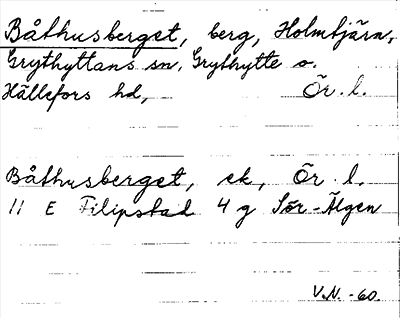 Båthusberget, berg, Holmtjärn,
Grythyttans sn, Grythytte o.
Hällefors hd, Ör. l.
Båthusberget, ek, Ör l.
11 E Filipstad 4 g Sör-Älgen
V.N. -60.